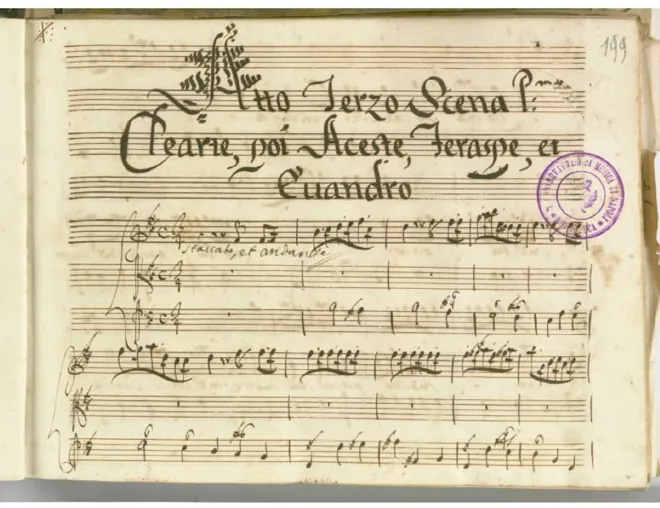 199
Atto Terzo Scena P:ma
Clearte, poi Aceste, Teraspe, et
Euandro
Staccato, et andante